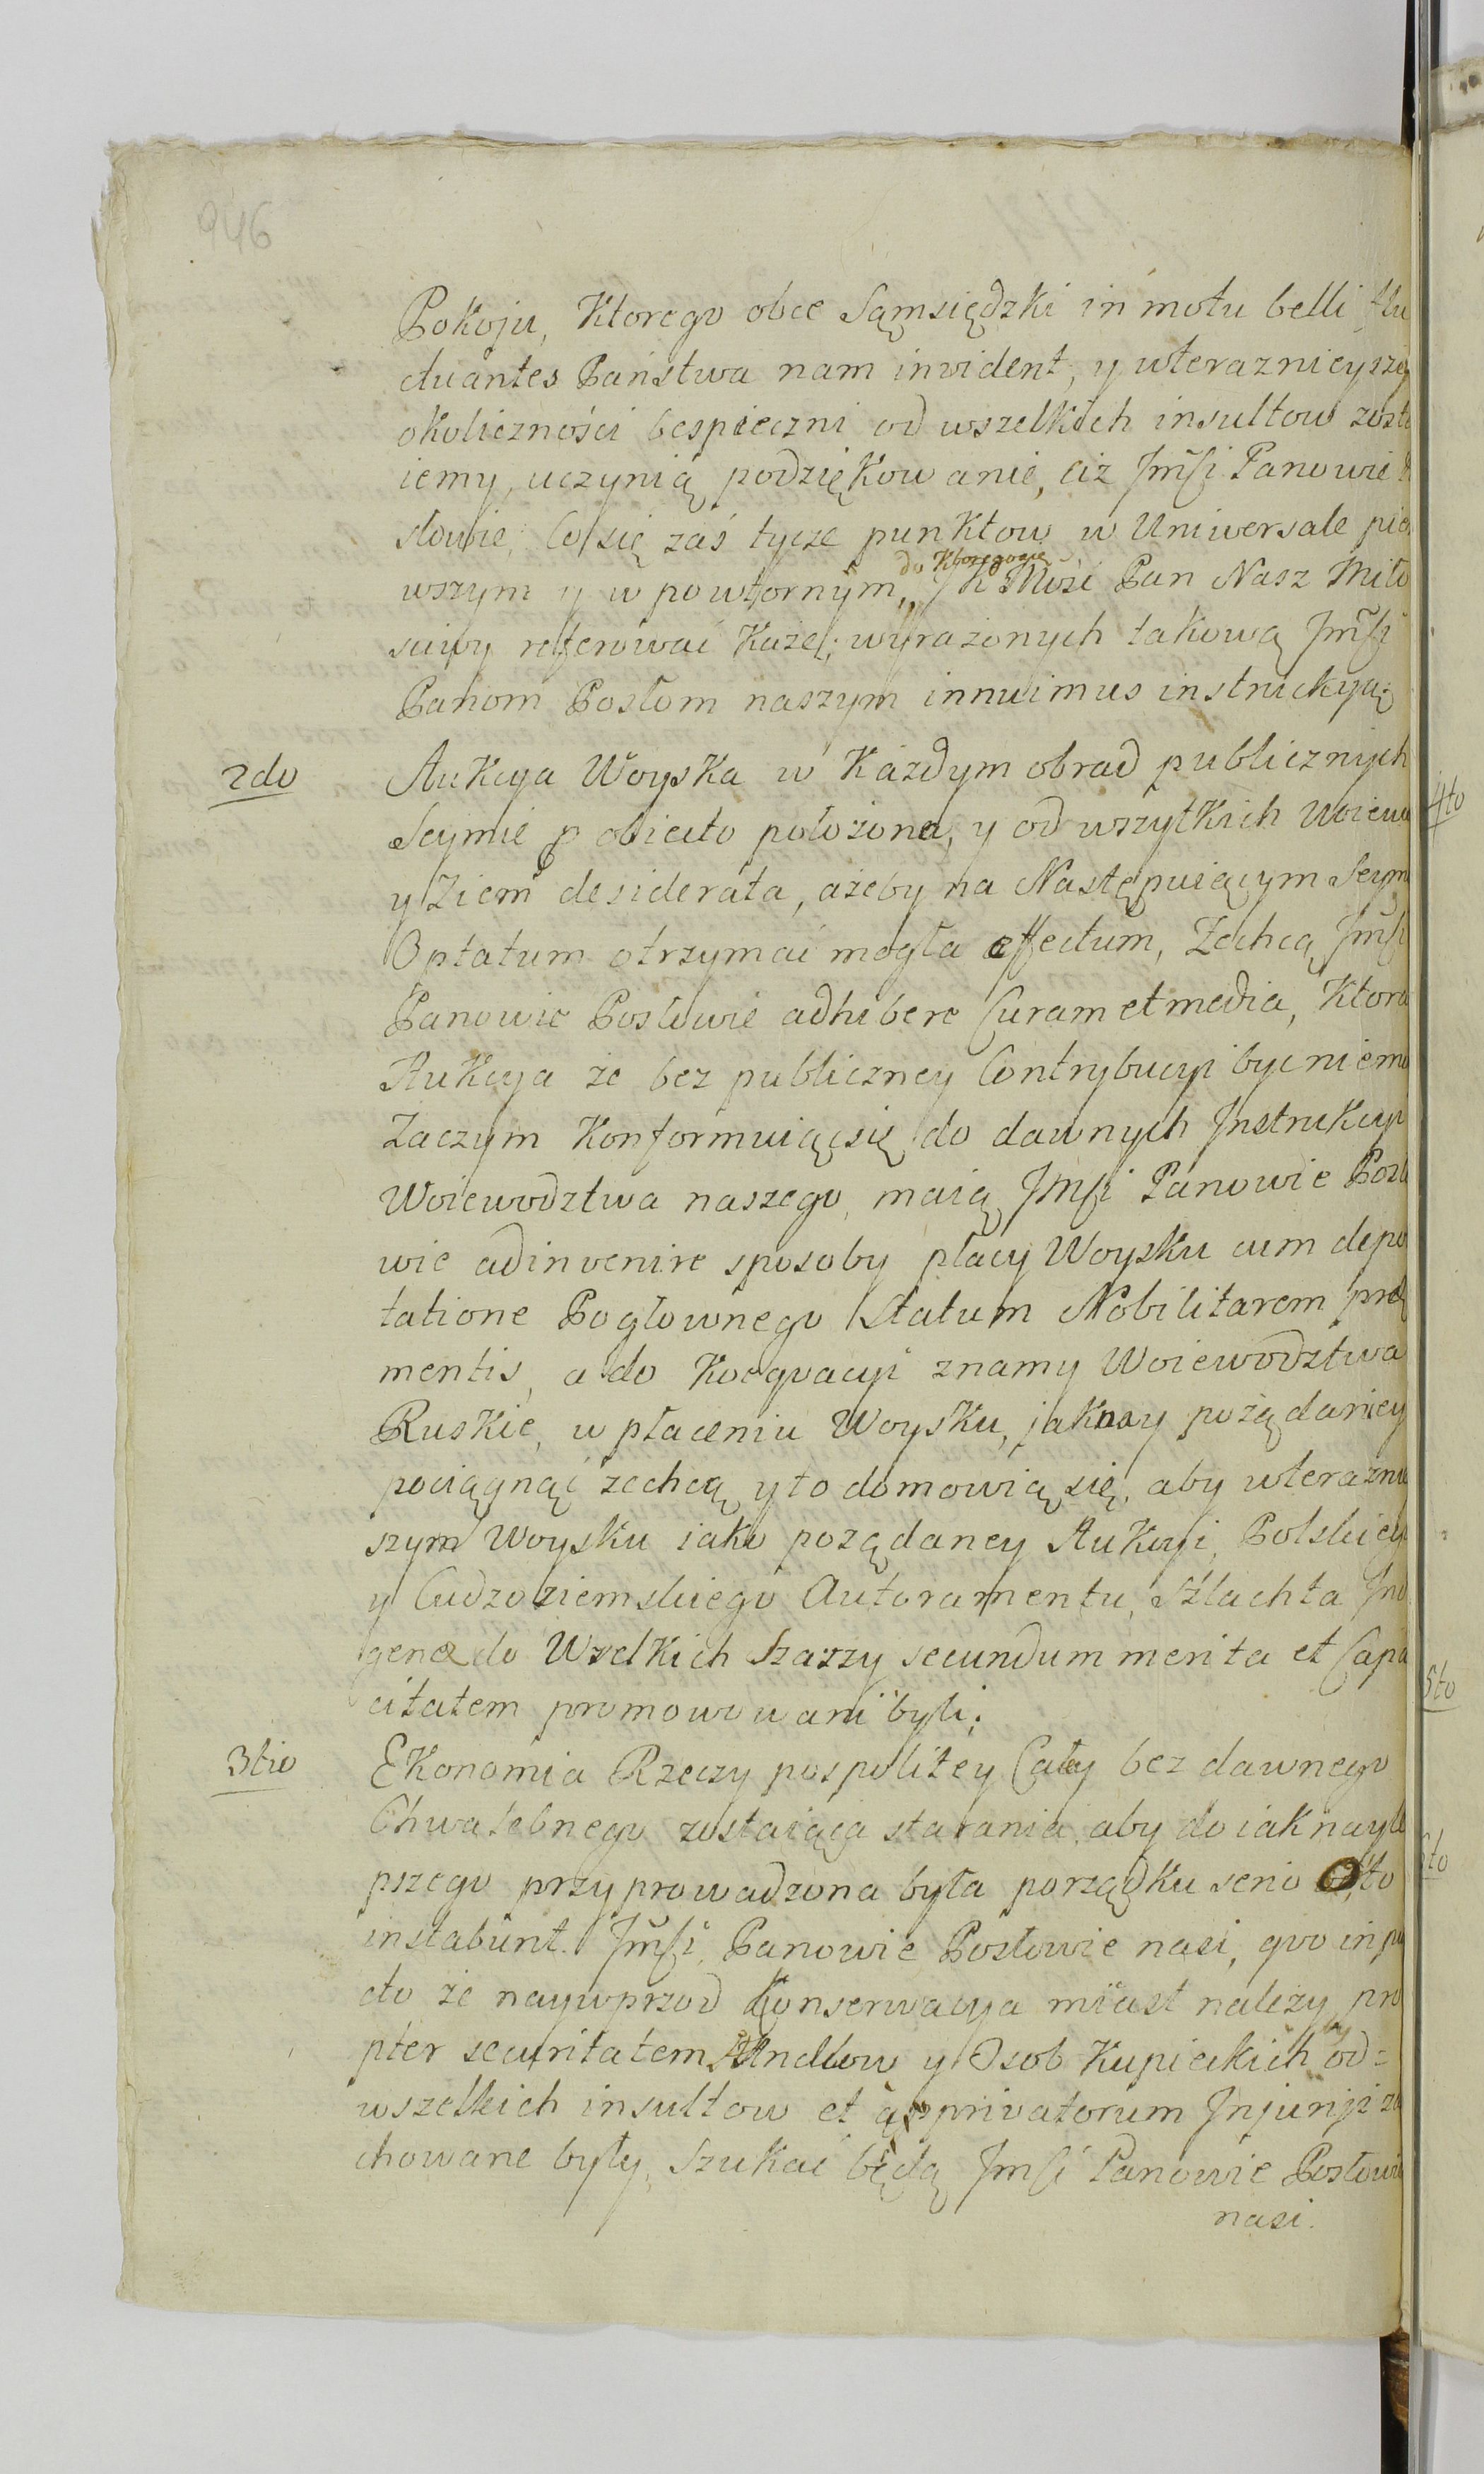 946
Pokoju, Ktorego obce Sąmsiędzki in motu belli flu
ctuantes Państwa nam invident, y wteraznieyszey
okoliczności bespieczni od wszelkich insultow zosta
iemy, uczynią podziękowanie, ciż Jmsi Panowie
słowie, Co się zaś tycze punktow w Uniwersale pier
wszym y w powtornym, do Ktorego się Mość Pan Nasz Miło
sciwy referować Każe, wyrażonych takową Jmsi
Panom Posłom naszym innuimus instrukcyą;
2do Aukcya Woyska w Każdym obrad publicznych
Seymie p obiecto położona, y od wszytkich Woiew
y Ziem desiderata, ażeby na Następuiącym Seym
Optatum otrzymać mogła effectum, Zechcą Jmsi
Panowie Posłowie adhibere Curam et media, Ktora
Aukcya że bez publiczney Contrybucyi byc niemo
Zaczym Konformuiąc się do dawnych Instrukcyi
Woiewodztwa naszego, maią JMsi Panowie Posło
wie adinvenire sposoby płacy Woysku cum depo
tatione Pogłownego Statum Nobilitarem pre
mentis, a do Koeqvacyi znamy Woiewodztwa
Ruskie, w płaceniu Woysku, jaknay pożądaniey
pociągnąć zechcą, y to domowią się, aby wteraznie
szym Woysku iako pożądaney Aukcyi, Polskiey
y Cudzoziemskiego Autoramentu, Szlachta Ind
genæ do Wszelkich Szarzy secundum merita et Capa
citatem promowowani byli;
3tio Ekonomia Rzeczy pospolitey Całey bez dawnego
Chwalebnego zostaiąca starania, aby do iak nayle
pszego przyprowadzona była porządku serio o to
instabunt Jmsi Panowie Posłowie nasi, qvo in pu
cto że naywprzod Konserwacya miast należy pro
pter securitatem Andlow y Osob Kupieckich od=
wszelkich insultow et a privatorum Injuriji za
chowane były, Szukać będą Jmsi Panowie Posłowie
nasi.
4to
5to